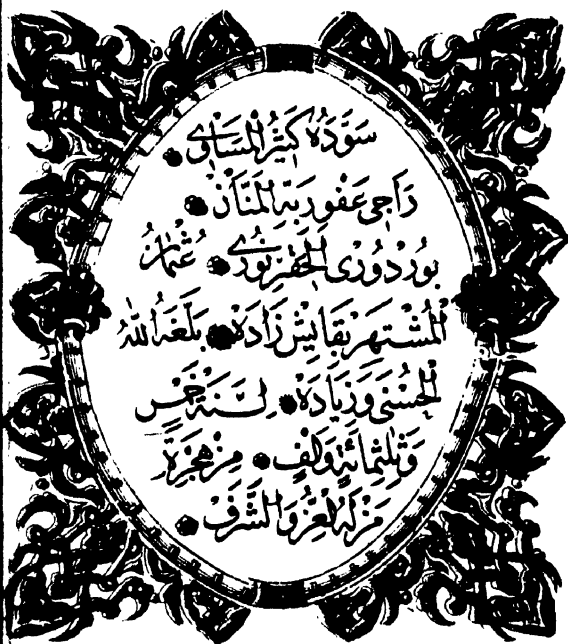 سَوَّدَهُ كَثِيرُ الْمَسَاوِي
رَاجِي عَفْوِ رَبِّهِ الْمَنَّانِ
بُورْدُورِي الْحَقِيرُ نُورِي عُثْمَانُ
الْمُشْتَهِرُ بِقَايِشْ زَادَهْ بَلَّغَهُ اللهُ
الْحُسْنَى وَزِيَادَةً لِسَنَةِ خَمْسٍ
وَثَلٰثِمِائَةٍ وَاَلْفٍ مِنْ هِجْرَةِ
مَنْ لَهُ الْعِزُّ وَالشَّرَفُ